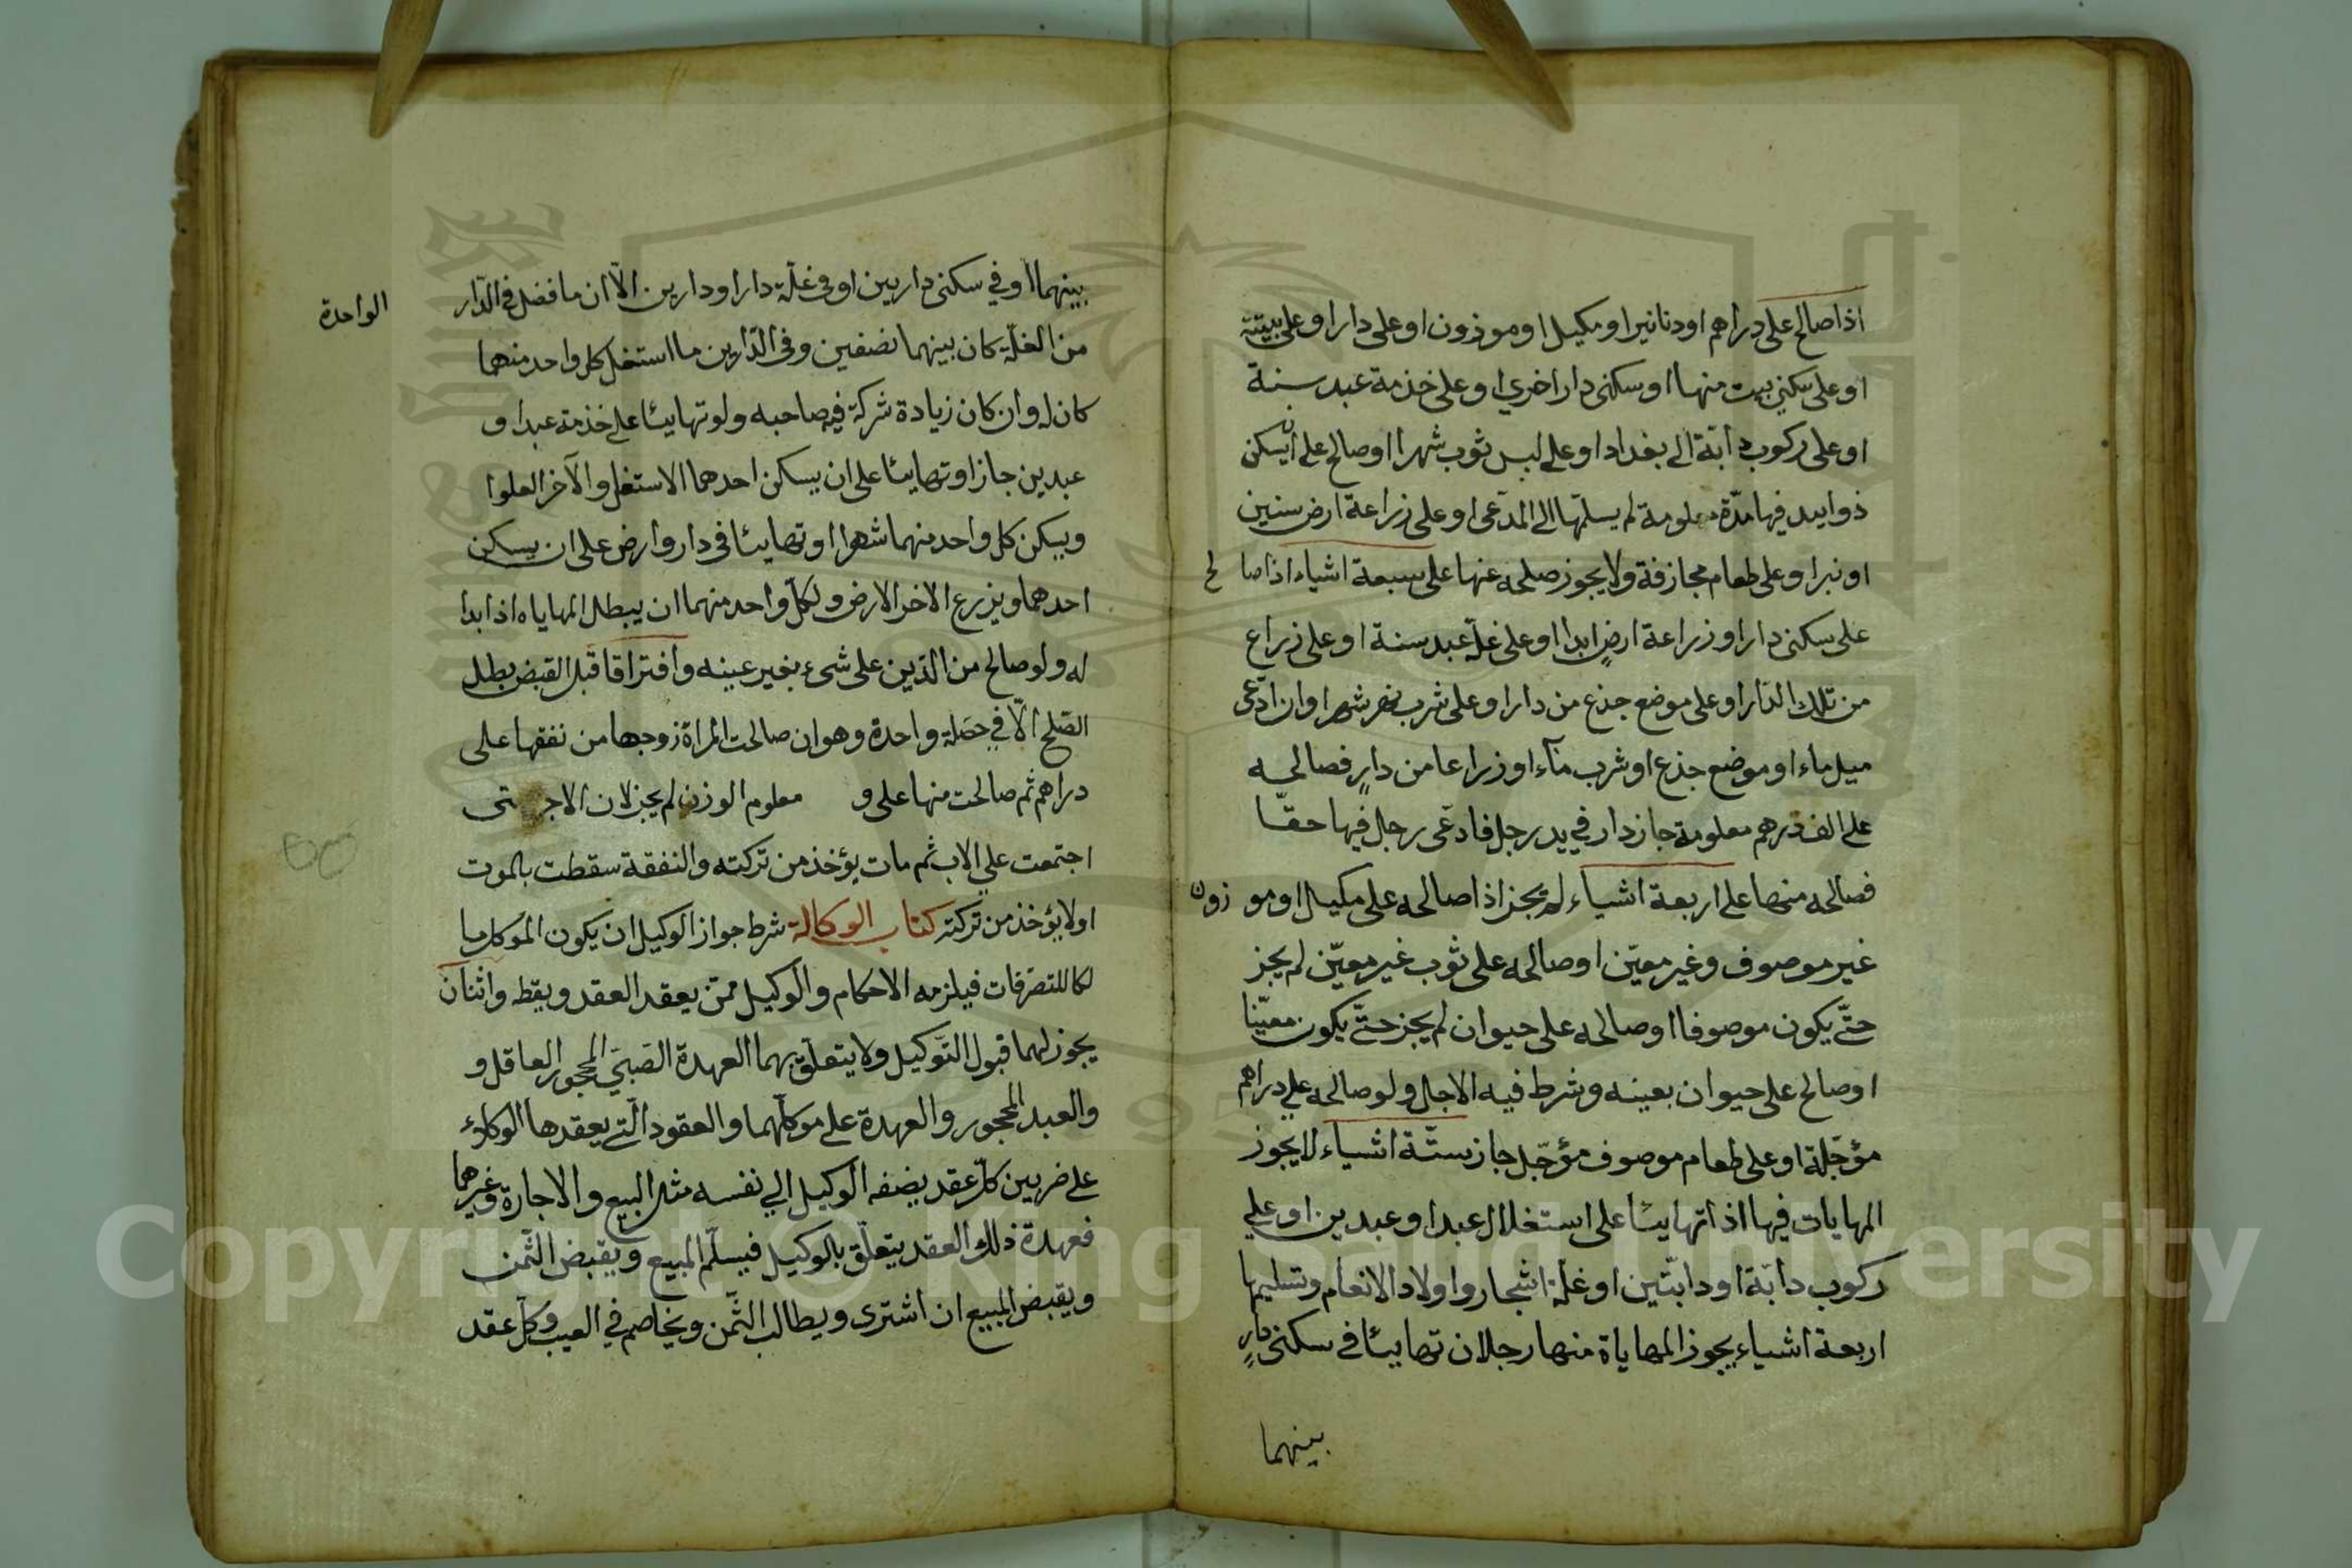 اذا صالح على دراهم او دنانير او مكيل او موزون او على دار او على بيته
او على سكنى بيت منها او سكنى دار اخري او على خذمة عبد سنة
او على ركوب دابّة الى بغداد او على لبس ثوب شهرا او صالح على ان يسكن
ذو اليد فيها مدّة معلومة لم يسلمّها الى المدّعى او على زراعة ارض سنين
او على طعام مجازفة ولا يجوز صلحه عنها على سبعة اشياء اذا صالح
على سكنى دار او زراعة ارضٍ ابدا او على غلّة عبد سنة او على زراع
من تلك الدّار او على موضع جذع من دار او على شرب نهر شهرا وان ادّعى
ميل ماء او موضع جذع او شرب مآء او زراعا من دارٍ فصالحه
على الف درهم معلومة جاز دار في يد رجل فادعّى رجل فيها حقّا
فصالحه منها على اربعة اشياء لم يجز اذا صالحه على مكيل او موزون
غير موصوف وغير معيّن او صالحه على ثوب غير معيّن لم يجز
حتّى يكون موصوفا او صالحه على حيوان لم يجز حتّى يكون معيّنا
او صالح على حيوان بعينه وشرط فيه الاجل ولو صالحه علي دراهم
مؤجّلة او على طعام موصوف مؤجّل جاز ستّة اشياء لا يجوز
المهايات فيها اذا تهايئا على استغلال عبد او عبدين او علي
ركوب دابّة او دابّتين او غلّة اشجار واولاد الانعام وتسليمها
اربعة اشياء يجوز المهاياة منها رجلان تهايئا في سكنى دارٍ
بينهما
بينهما او في سكنى دارين او في غلّة دار او دارين الّا ان ما فضل في الدّار
الواحدة
من الغلّة كان بينهما نصفين وفى الدّارين ما استغل كل واحد منهما
كان له وان كان زيادة شركة فيه صاحبه ولو تهايئا على خذمة عبد او
عبدين جاز او تهايئا على ان يسكن احدهما الاسفل والآخر العلوا
ويسكن كل واحد منهما شهرا او تهايئا فى دار وارض على ان يسكن
احدهما ويزرع الاخر الارض ولكلّ واحد منهما ان يبطل المهاياه اذا بدا
له ولو صالح من الدّين على شىء بغير عينه وافتراقا قبل القبض بطل
الصّلح الّا في خصلة واحدة وهو ان صالحت المراة زوجها من نفقها على
دراهم ثم صالحت منها على و معلوم الوزن لم يجز لان الاجر
اجتمعت علي الاب ثم مات يؤخذ من تركته والنفقة سقطت بالموت
او لا يؤخذ من تركته كتاب الوكالة شرط جواز الوكيل ان يكون الموكل ما
لكا للتصرّفات فيلزمه الاحكام والوكيل ممّن يعقد العقد ويقطه واثنان
يجوز لهما قبول التّوكيل ولا يتعلّق بهما العهدة الصّبيّ المحجور العاقل و
والعبد المحجور والعهدة على موكلّهما والعقود الّتي يعقدها الوكلاء
على ضربين كلّ عقد يضفه الوكيل الي نفسه مثل البيع والاجارة وغيرهما
فعهدة ذلك العقد يتعلّق بالوكيل فيسلّم المبيع ويقبض الثّمن
ويقبض المبيع ان اشترى ويطالب الثّمن ويخاصم في العيب وكلّ عقد
Copyright © King Saud University